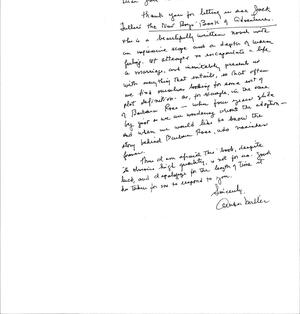 Thank you for letting us see Jack
Fuller's The New Boys' Book of Adventures.
This is a beautifully written novel with
an impressive scope and a depth of warm
feeling. It attempts to encapsulate a life,
a marriage, and inevitably presents us
with everything that entails, so that often
we find ourselves looking for some sort of
plot definition. As, for example, in the case
of Barbara Rose — when four years slide
by just as we are wondering about the adoption —
and when we would like to know the
story behind Barbara Rose, who remains
Thus I am afraid this book, despite
its obvious high quality, is not for us. Good
luck, and I apologize for the length of time it
has taken for us to respond to you.
Sincerely,